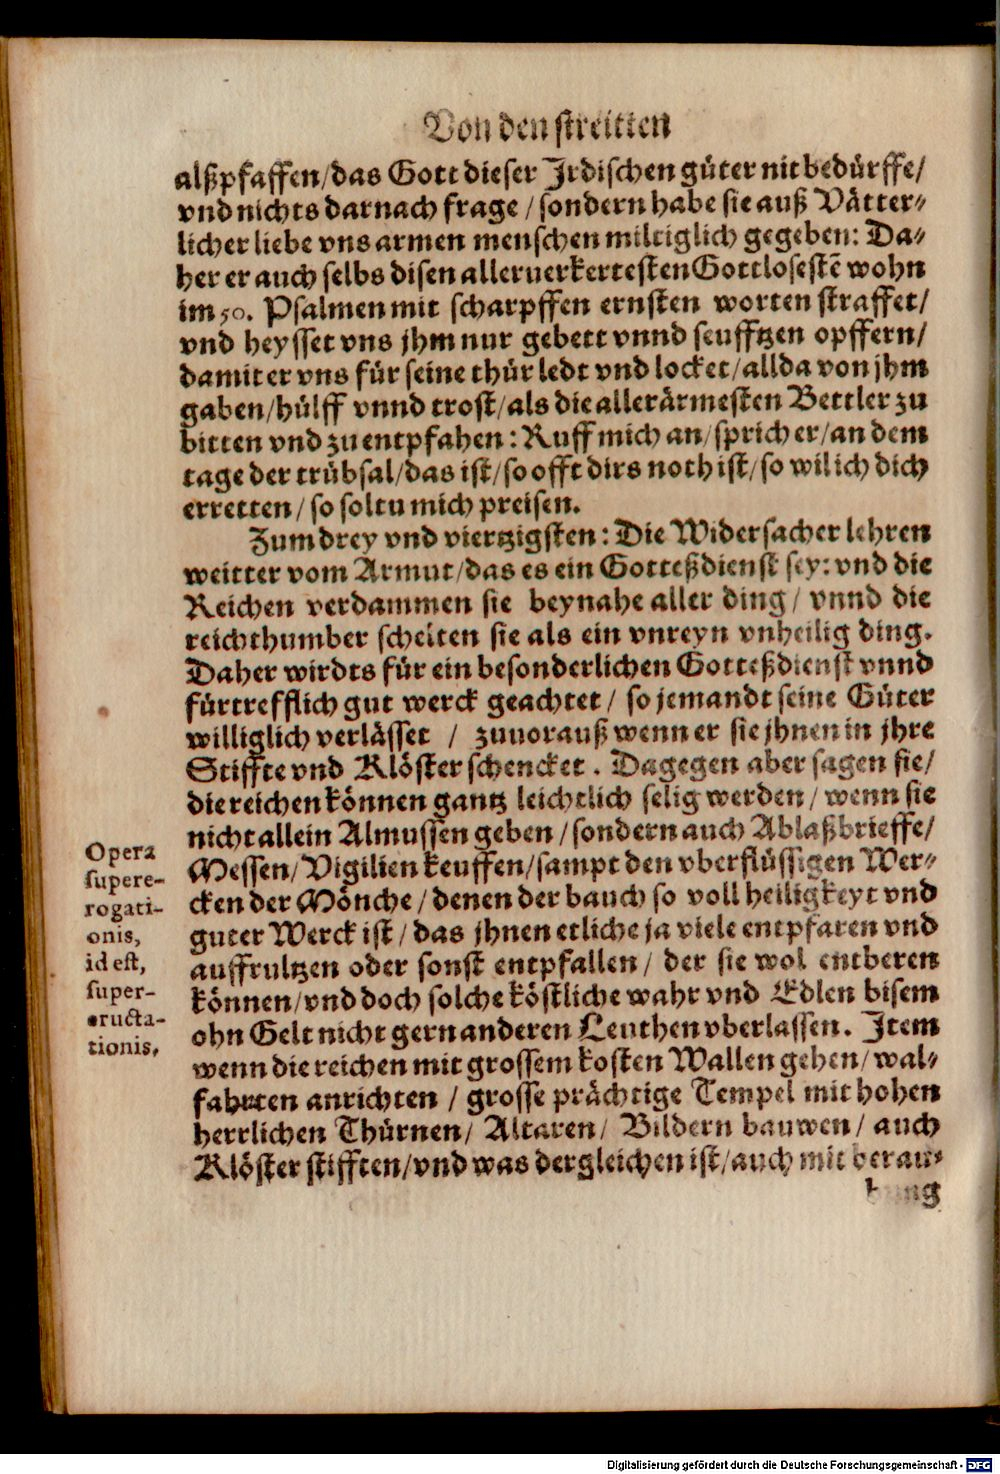 Von den streitten
alßpfaffen/das Gott dieser Jrdischen güter nit bedürffe/
vnd nichts darnach frage / sondern habe sie auß Vätter⸗
licher liebe vns armen menschen miltiglich gegeben: Da⸗
her er auch selbs disen alleruerkertesten Gottlosestẽ wohn
im 50. Psalmen mit scharpffen ernsten worten straffet/
vnd heysset vns jhm nur gebett vnnd seufftzen opffern/
damit er vns für seine thür ledt vnd locket/allda von jhm
gaben/hülff vnnd trost/als die allerärmesten Bettler zu
bitten vnd zu entpfahen: Ruff mich an/sprich er/an dem
tage der trübsal/das ist/so offt dirs noth ist/so wil ich dich
erretten/so soltu mich preisen.
Zum drey vnd viertzigsten: Die Widersacher lehren
weitter vom Armut/das es ein Gotteßdienst sey: vnd die
Reichen verdammen sie beynahe aller ding/ vnnd die
reichthumber schelten sie als ein vnreyn vnheilig ding.
Daher wirdts für ein besonderlichen Gotteßdienst vnnd
fürtrefflich gut werck geachtet/ so jemandt seine Güter
williglich verlässet / zuuorauß wenn er sie jhnen in jhre
Stiffte vnd Klöster schencket. Dagegen aber sagen sie/
die reichen können gantz leichtlich selig werden/ wenn sie
nicht allein Almussen geben/sondern auch Ablaßbrieffe/
Messen/Vigilien keuffen/sampt den vberflüssigen Wer⸗
cken der Mönche/denen der bauch so voll heiligkeyt vnd
guter Werck ist/das jhnen etliche ja viele entpfaren vnd
auffrultzen oder sonst entpfallen/ der sie wol entberen
können/vnd doch solche köstliche wahr vnd Edlen bisem
ohn Gelt nicht gern anderen Leuthen vberlassen. Jtem
wenn die reichen mit grossem kosten Wallen gehen/wal⸗
fahrten anrichten / grosse prächtige Tempel mit hohen
herrlichen Thürnen/ Altaren/ Bildern bauwen/ auch
Klöster stifften/vnd was dergleichen ist/auch mit berau⸗
bung
Opera
supere-
rogati-
onis,
id est,
super-
eructa-
tionis,
Digitalisierung gefördert durch die Deutsche Forschungsgemeinschaft - DFG